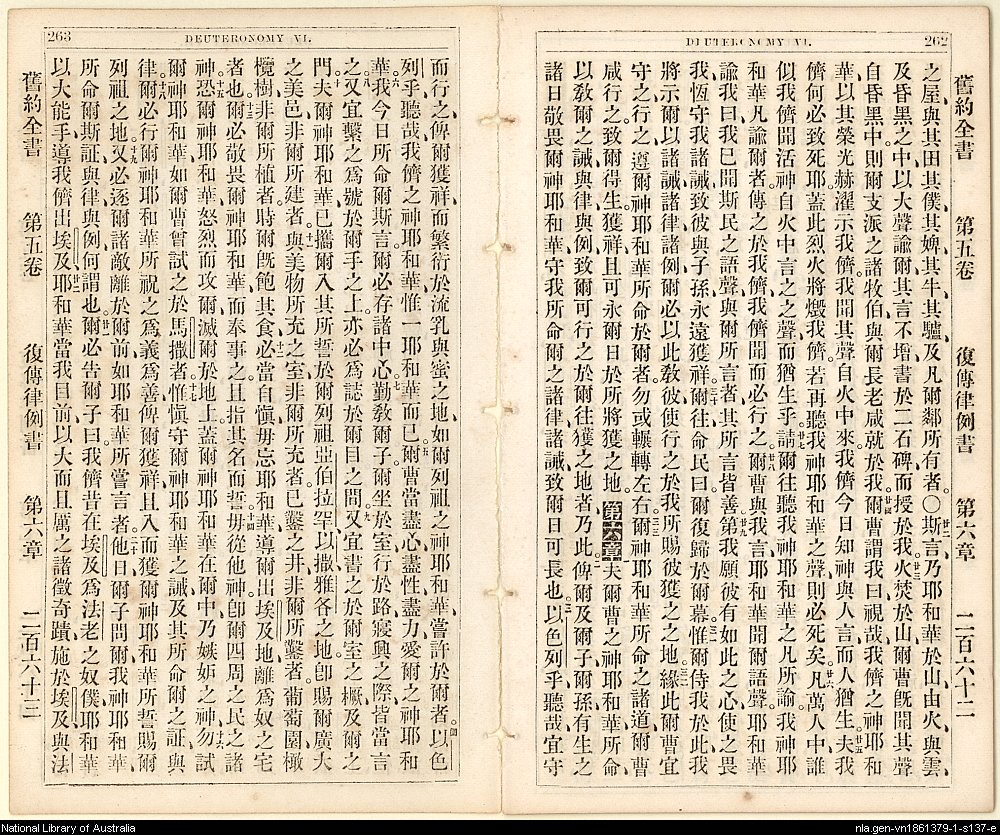 DEUTERONOMY VI. 262
舊約全書 第五卷 復傳律例書 第六章 二百六十二
之屋、與其田、其僕、其婢、其牛、其驢、及凡爾鄰所有者。○廿二斯言乃耶和華於山、由火與雲、
及昏黑之中、以大聲諭爾、其言不增、書於二石碑、而授於我。廿三火焚於山、爾曹旣聞其聲
自昏黑中、則爾支派之諸牧伯、與爾長老、咸就於我。廿四爾曹謂我曰、視哉、我儕之神耶和
華、以其榮光赫濯示我儕、我聞其聲自火中來、我儕今日知神與人言、而人猶生。廿五夫我
儕何必致死耶、蓋此烈火將燬我儕。若再聽我神耶和華之聲、則必死矣。廿六凡萬人中誰
似我儕聞活神自火中言之之聲、而猶生乎。廿七請爾往聽我神耶和華之凡所諭、我神耶
和華凡諭爾者、傳之於我儕、我儕聞而必行之。廿八爾曹與我言、耶和華聞爾語聲、耶和華
諭我曰、我已聞斯民之語聲、與爾所言者、其所言皆善。廿九第我願彼有如此之心、使之畏
我、恆守我諸誡、致彼與子孫永遠獲祥。三十爾往命民曰、爾復歸於爾幕。三一惟爾侍我於此、我
將示爾以諸誡諸律諸例、爾必以此敎彼、使行之於我所賜彼獲之之地。三二緣此爾曹宜
守之行之、遵爾神耶和華所命於爾者、勿或輾轉左右。三三爾神耶和華所命之諸道、爾曹
咸行之、致爾得生獲祥、且可永爾日於所將獲之地。 第六章 夫爾曹之神耶和華所命
以敎爾之誡、與律與例、致爾可行之於爾往獲之地者、乃此。二俾爾及爾子爾孫、有生之
諸日、敬畏爾神耶和華、守我所命爾之諸律諸誡、致爾日可長也。三以色列乎、聽哉、宜守
263 DEUTERONOMY VI.
而行之、俾爾獲祥、而繁衍於流乳與蜜之地、如爾列祖之神耶和華、嘗許於爾者。四以色
列乎、聽哉、我儕之神耶和華、惟一耶和華而已。五爾曹當盡心、盡性、盡力、愛爾之神耶和
華。六我今日所命爾斯言、爾必存諸中心。七勤敎爾子、爾坐於室、行於路、寢興之際、皆當言
之。八又宜繫之爲號於爾手之上、亦必爲誌於爾目之間。九又宜書之於爾室之橛、及爾之
門。十夫爾神耶和華已攜爾入其所誓於爾列祖亞伯拉罕、以撒、雅各之地、卽賜爾廣大
之美邑、非爾所建者。十一與美物所充之室、非爾所充者、已鑿之井、非爾所鑿者、葡萄園、橄
欖樹、非爾所植者、時爾旣飽其食。十二必當自慎、毋忘耶和華、導爾出埃及地、離爲奴之宅
者也。十三爾必敬畏爾神耶和華、而奉事之、且指其名而誓。十四毋從他神、卽爾四周之民之諸
神。十五恐爾神耶和華怒烈而攻爾、滅爾於地上、蓋爾神耶和華在爾中、乃嫉妒之神。十六勿試
爾神耶和華、如爾曹曾試之於馬撒者。十七惟愼守爾神耶和華之誡、及其所命爾之証、與
律。十八爾必行爾神耶和華所視之爲義爲善、俾爾獲祥、且入而獲爾神耶和華所誓賜爾
列祖之地。十九又必逐爾諸敵離於爾前、如耶和華所嘗言者。二十他日爾子問爾、我神耶和華、
所命爾斯証、與律、與例、何謂也。廿一爾必告爾子曰、我儕昔在埃及爲法老之奴僕、耶和華
以大能手、導我儕出埃及。廿二耶和華當我目前、以大而且厲之諸徵奇蹟、施於埃及與法
舊約全書 第五卷 復傳律例書 第六章 二百六十三
National Library of Australia
nla.gen-vn1861379-1-s137-e